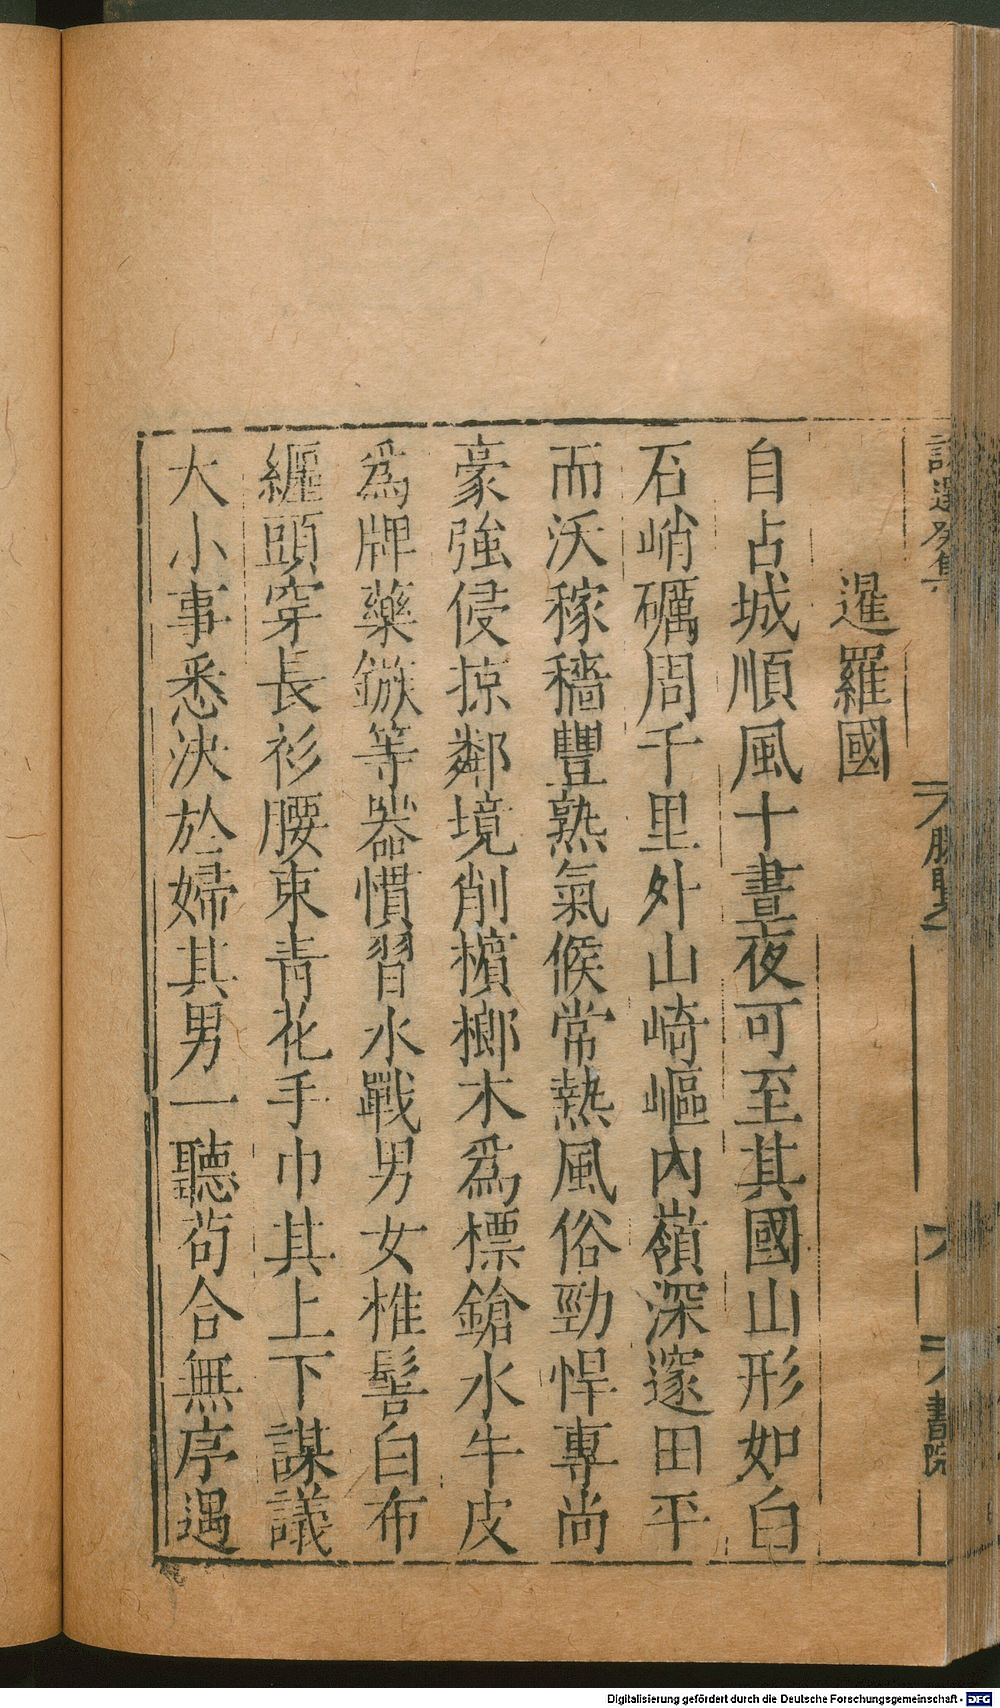 暹羅國
自占城順風十晝夜可至其國山形如白
石峭礪周千里外山崎嶇內嶺深邃田平
而沃稼穡豐熟氣候常熱風俗勁悍專尚
豪強侵掠鄰境削檳榔木爲標鎗水牛皮
爲牌藥鏃等器慣習水戰男女椎髻白布
纏頭穿長衫腰束青花手巾其上下謀議
大小事悉決於婦其男一聽苟合無序遇
書院
Digitalisierung gefördert durch die Deutsche Forschungsgemeinschaft - DFG